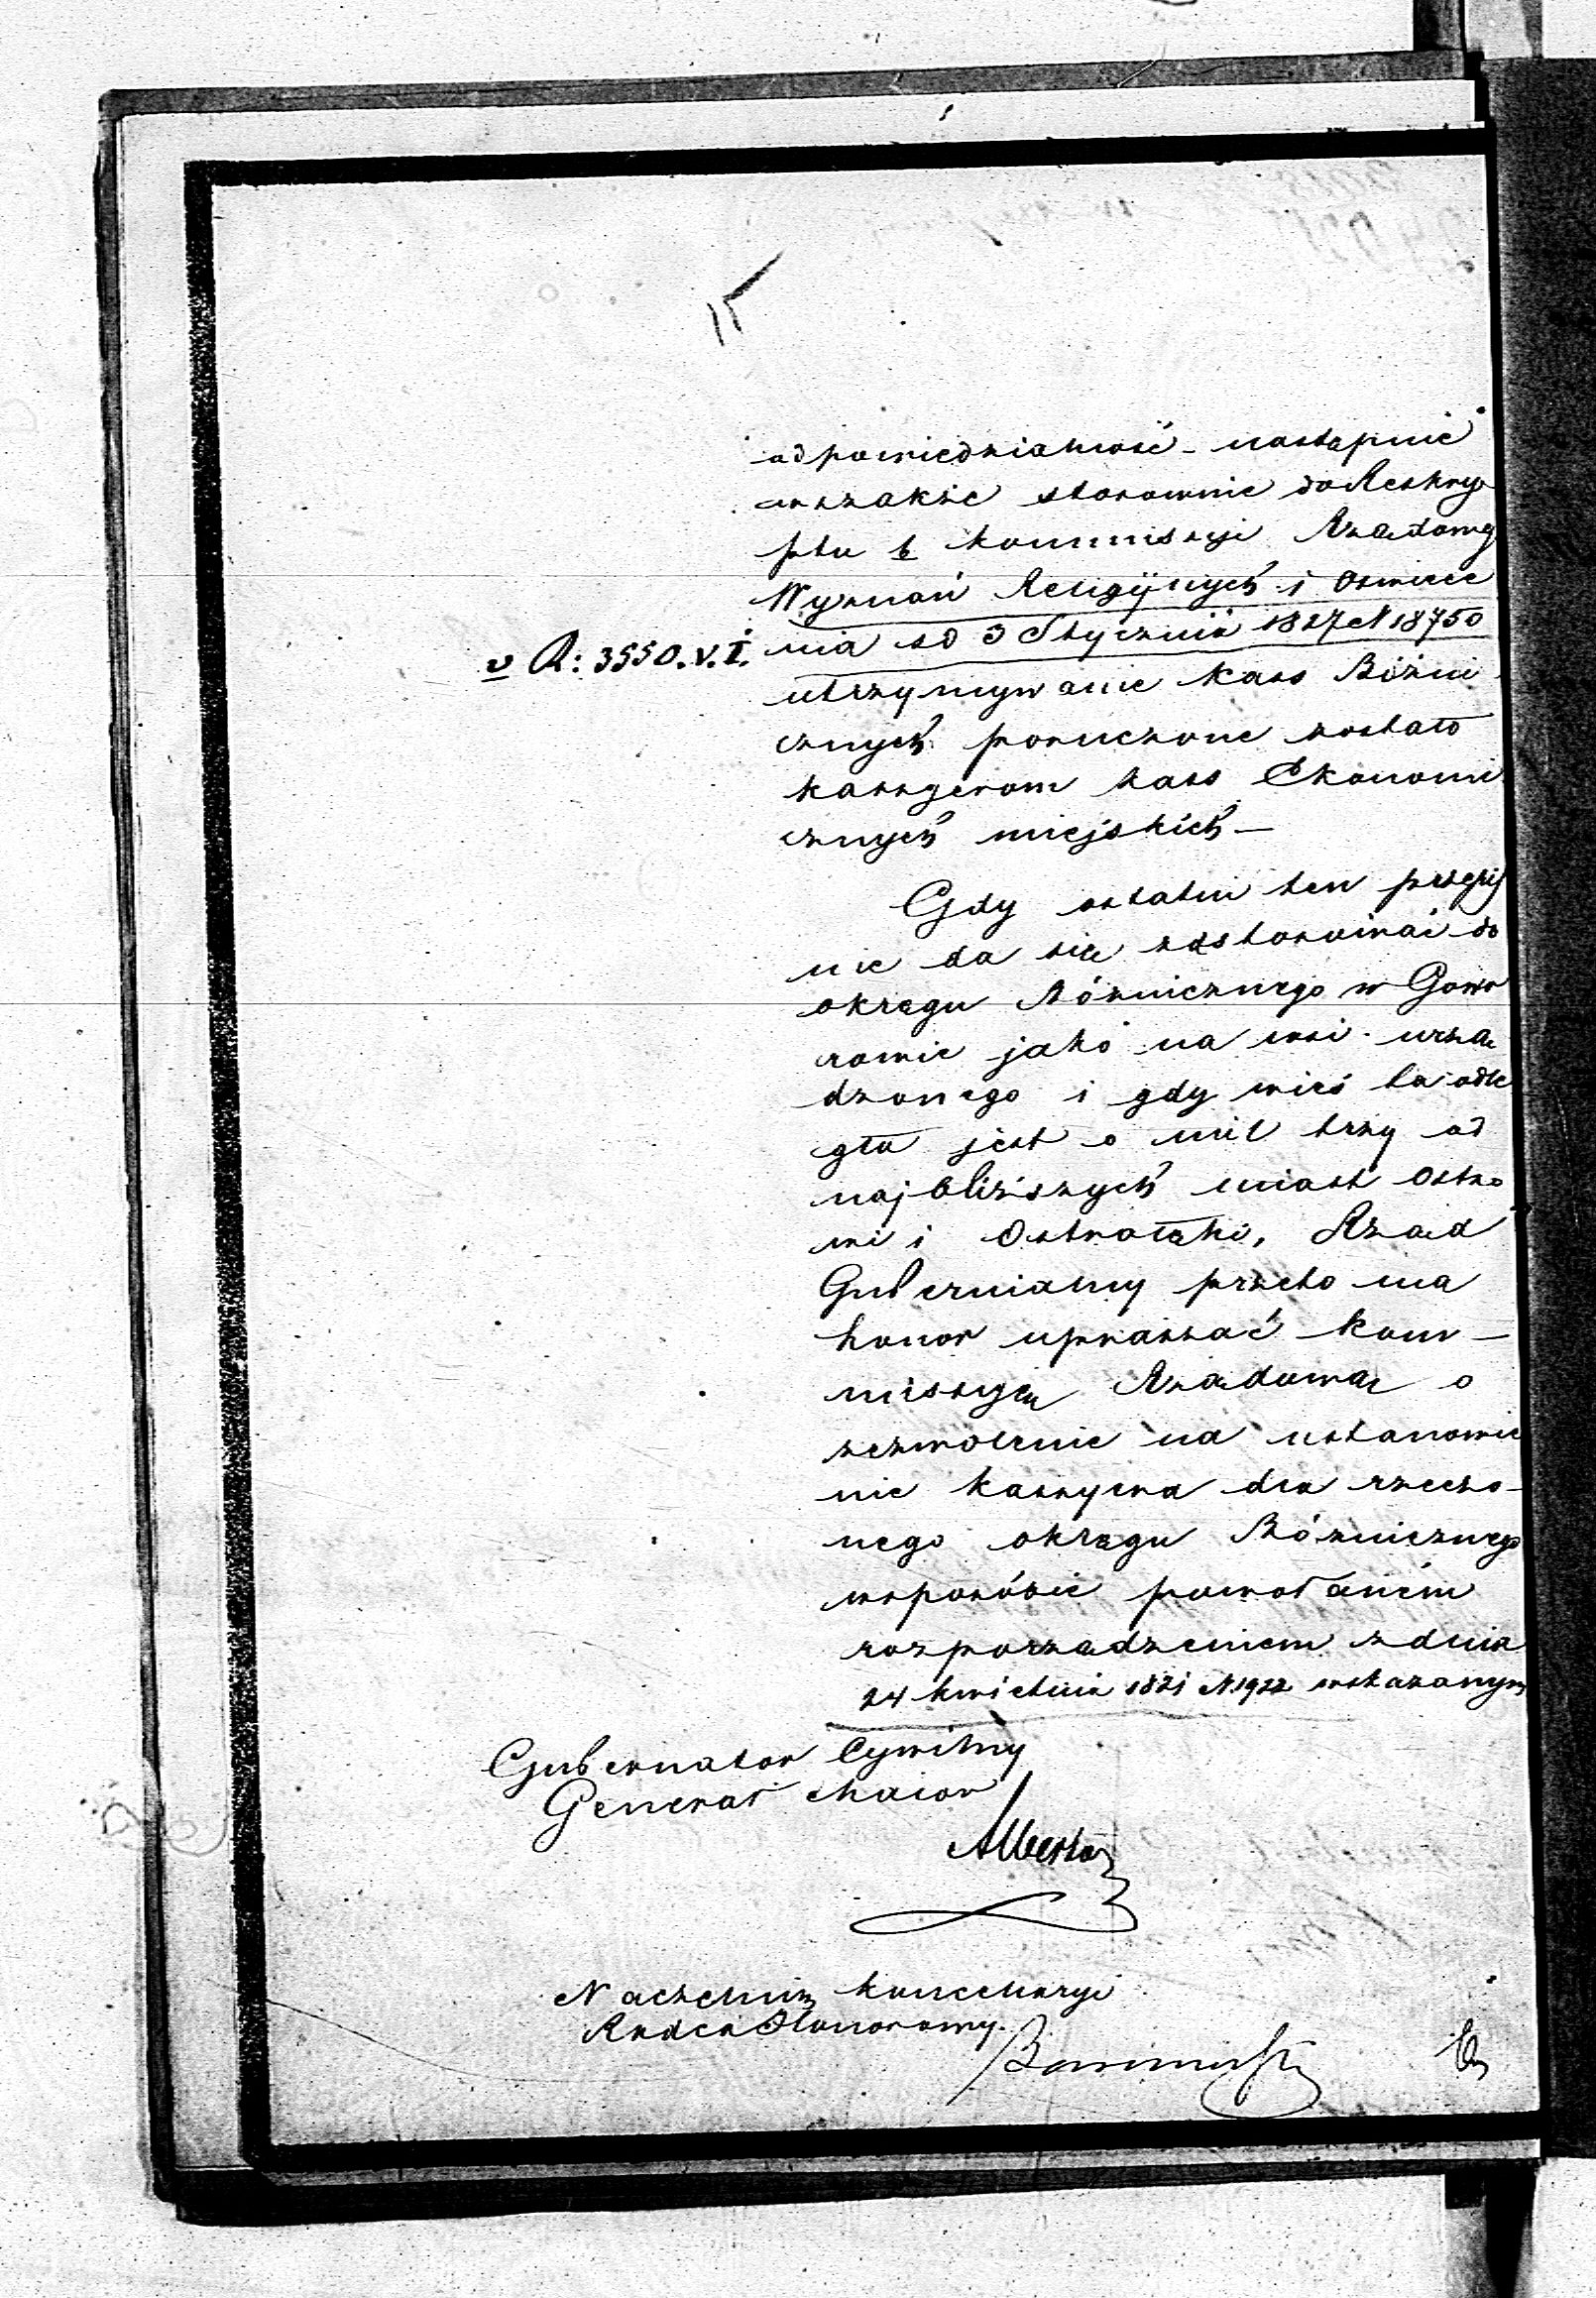 odpowiedzialność – nastąpnie
wszakże stosownie do Reskryp
ptu b Kommissyi Rządowey
Wyznań Religijnych i Oswiece
nia z d 3 Stycznia 1827 N 18750
v R: 3550. V. I.
utrzymywanie kass Bóżni
cznych poruczone zostało
kassyerom kass Ekonomi
cznych miejskich –
Gdy ostatni ten przepis
nie da się zastosować do
okręgu Bóżnicznego w Gowo
rowie jako na wsi urzą
dzonego i gdy wieś ta odle
gła jest o mil trzy od
najbliższych miast Ostro
wi i Ostrołęki, Rząd
Gubernialny przeto ma
honor upraszać Kom –
missyą Rządową o
zezwolenie na ustanowie
nie kassyera dla rzeczo –
nego okręgu Bóżnicznego
wsposobie powołaném
rozporządzeniem z dnia
24 kwietnia 1821 N. 1922 wskazanym
Gubernator Cywilny
Generał Maior
Naczelnik Kancellaryi
Radca Honorowy.